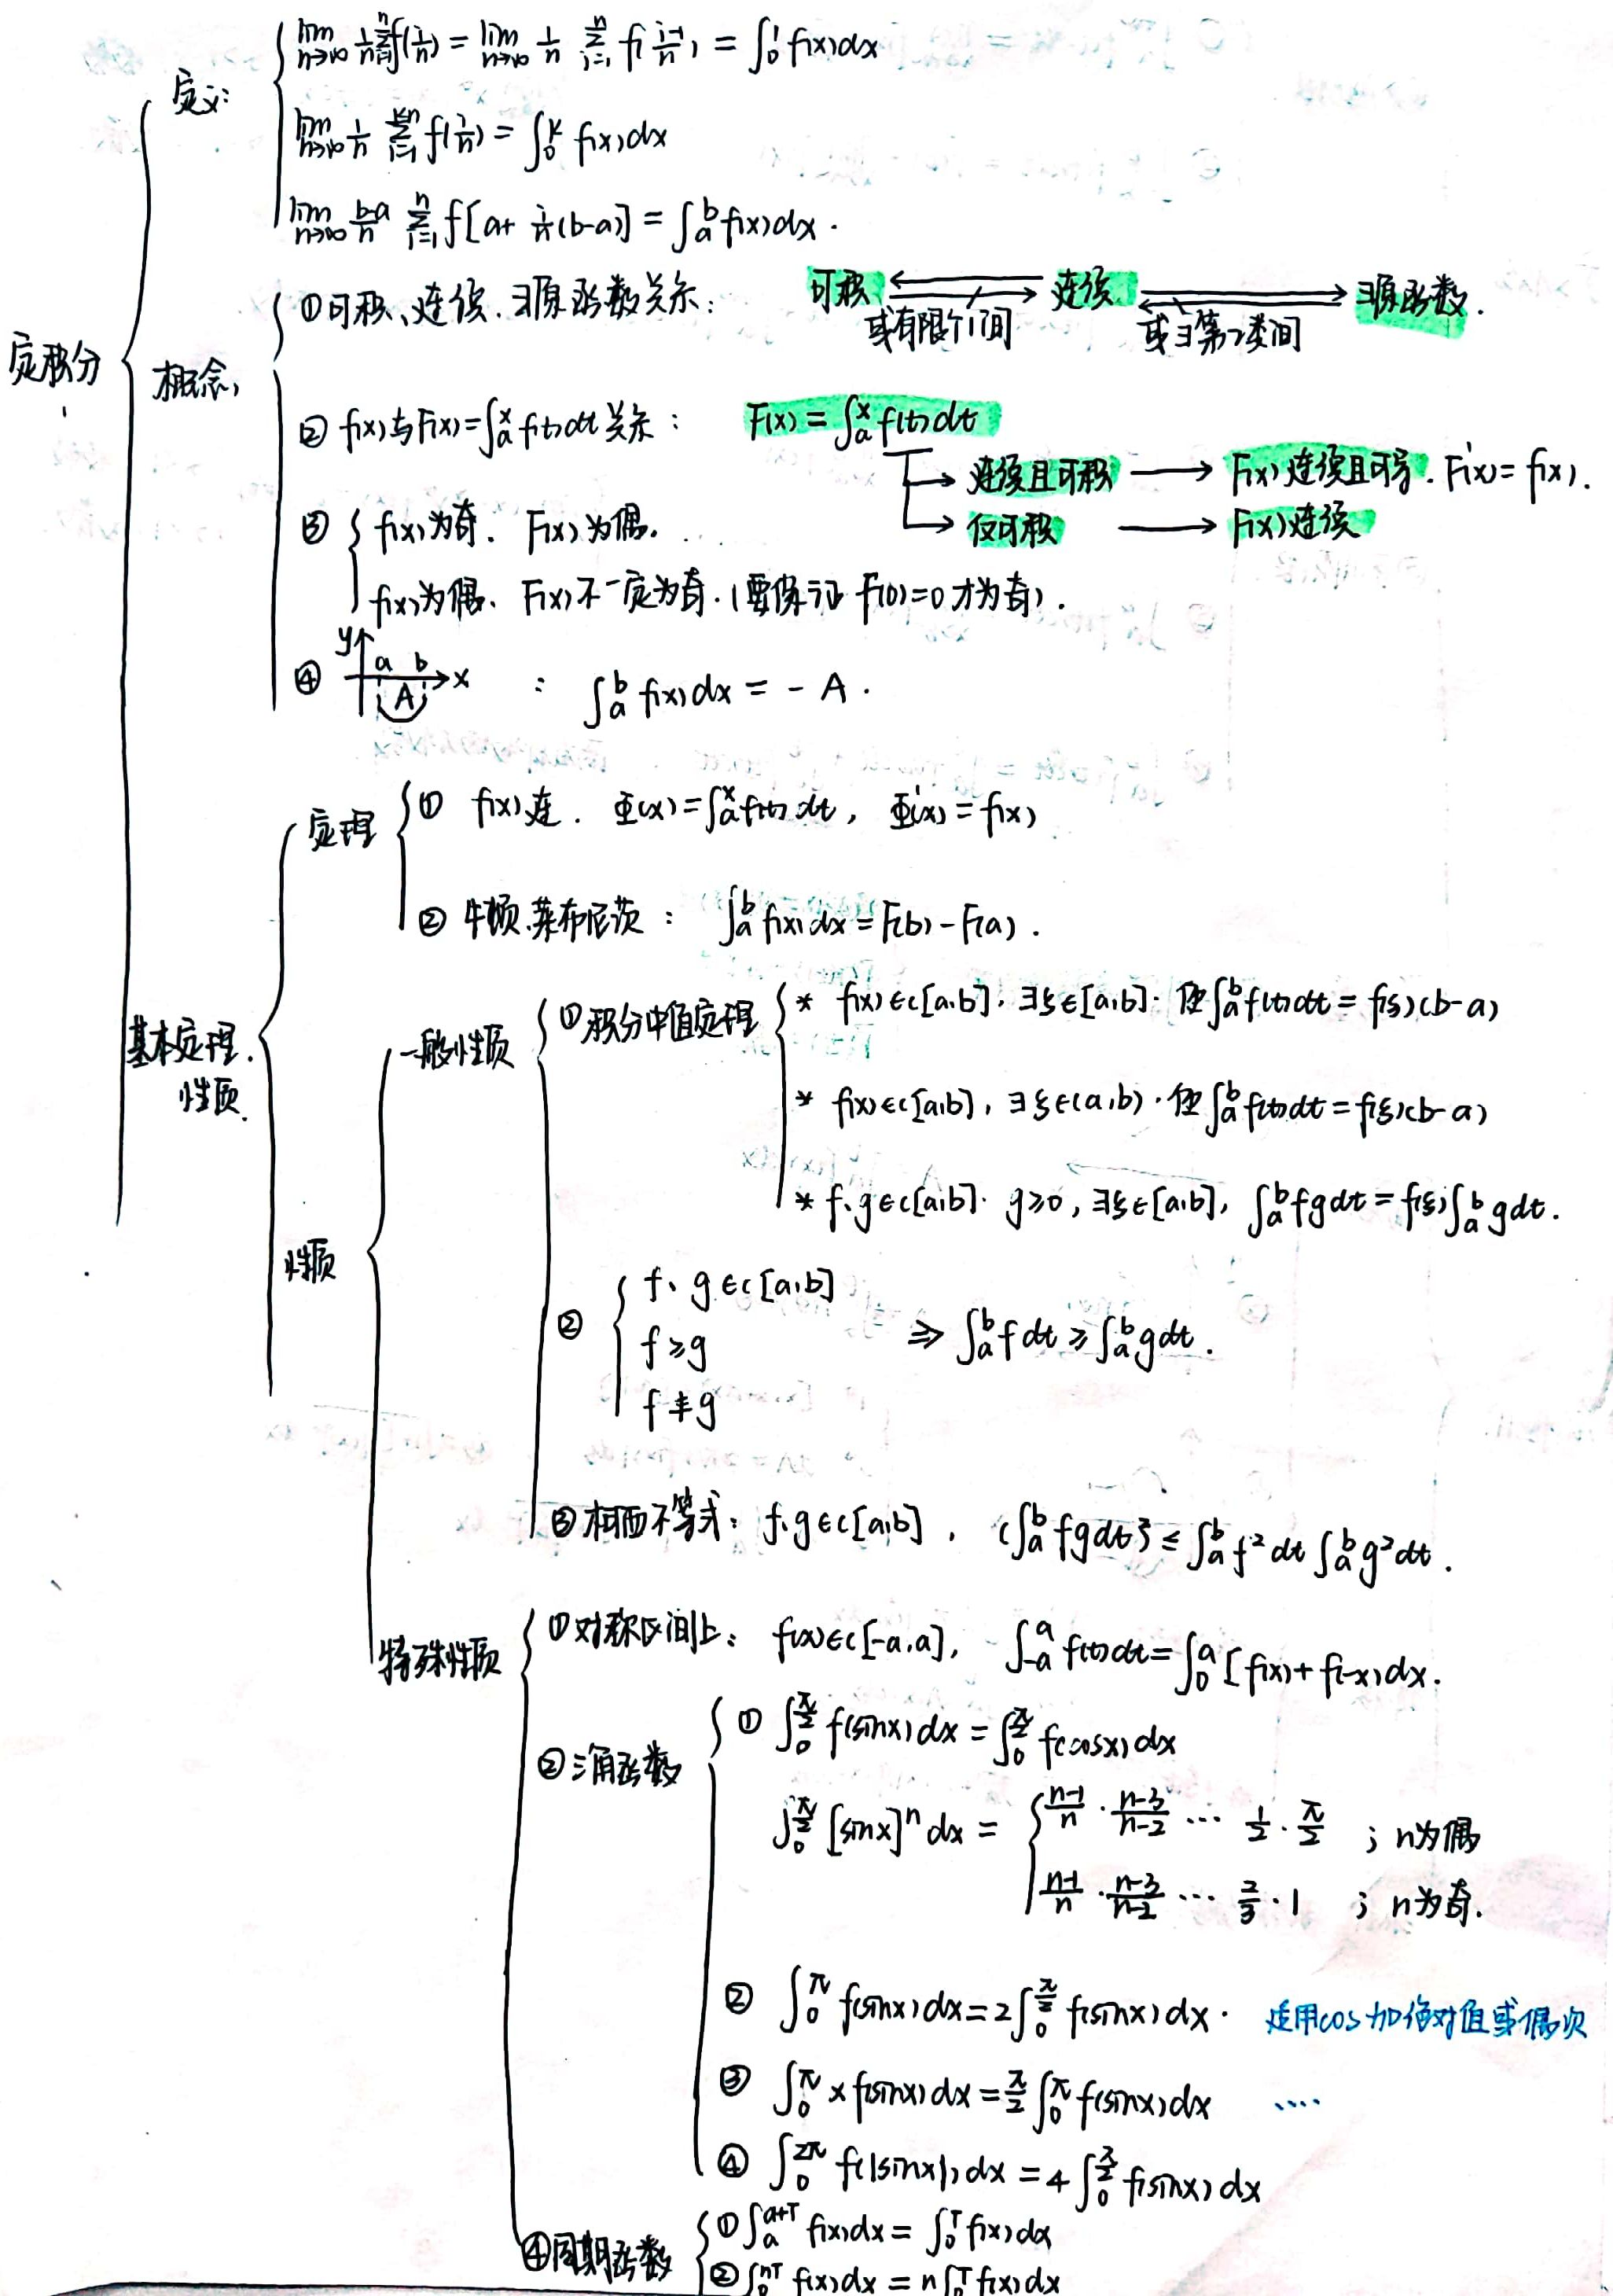 定积分
定义:
lim n→∞ 1/n Σ_{i=1}^{n} f(i/n) = lim n→∞ 1/n Σ_{i=1}^{n} f(i-1/n) = ∫_0^1 f(x)dx
lim n→∞ 1/n Σ_{i=1}^{kn} f(i/n) = ∫_0^k f(x)dx
lim n→∞ b-a/n Σ_{i=1}^{n} f[a+ i/n(b-a)] = ∫_a^b f(x)dx.
概念,
①可积、连续、∃原函数关系:
可积 连续 ∃原函数.
或有限个间 或∃第2类间
② f(x)与F(x)=∫_a^x f(t)dt关系: F(x)=∫_a^x f(t)dt
→ 连续且可积 → F(x)连续且可导. F'(x)=f(x).
→ 仅可积 → F(x)连续
③ f(x)为奇. F(x)为偶.
f(x)为偶、F(x)不一定为奇.(要保证F(0)=0才为奇).
④ y a b x A : ∫_a^b f(x)dx = - A.
基本定理.
性质.
定理
① f(x)连. Φ(x)=∫_a^x f(t)dt, Φ'(x)=f(x)
② 牛顿.莱布尼茨: ∫_a^b f(x)dx=F(b)-F(a).
性质
一般性质
①积分中值定理
* f(x)∈c[a,b]. ∃ξ∈[a,b]. 使∫_a^b f(t)dt = f(ξ)(b-a)
* f(x)∈c[a,b], ∃ξ∈(a,b). 使∫_a^b f(t)dt=f(ξ)(b-a)
* f、g∈c[a,b]. g≥0, ∃ξ∈[a,b], ∫_a^b fgdt = f(ξ)∫_a^b gdt.
② f、g∈c[a,b]
f≥g ⇒ ∫_a^b f dt ≥ ∫_a^b gdt.
f≢g
③柯西不等式: f、g∈c[a,b], (∫_a^b fgdt)² ≤ ∫_a^b f²dt ∫_a^b g²dt.
特殊性质
①对称区间上: f(x)∈c[-a,a], ∫_{-a}^a f(t)dt=∫_0^a [f(x)+f(-x)dx.
②三角函数
① ∫_0^{π/2} f(sinx)dx=∫_0^{π/2} f(cosx)dx
∫_0^{π/2} [sinx]^n dx =
n-1/n · n-3/n-2 ··· 1/2 · π/2 ; n为偶
n-1/n · n-3/n-2 ··· 2/3 · 1 ; n为奇.
② ∫_0^π f(sinx)dx=2∫_0^{π/2} f(sinx)dx. 适用cos加绝对值或偶次
③ ∫_0^π xf(sinx)dx=π/2 ∫_0^π f(sinx)dx ····
④ ∫_0^{2π} f(|sinx|)dx = 4∫_0^{π/2} f(sinx)dx
④周期函数
① ∫_a^{a+T} f(x)dx = ∫_0^T f(x)dx
② ∫_0^{nT} f(x)dx = n∫_0^T f(x)dx